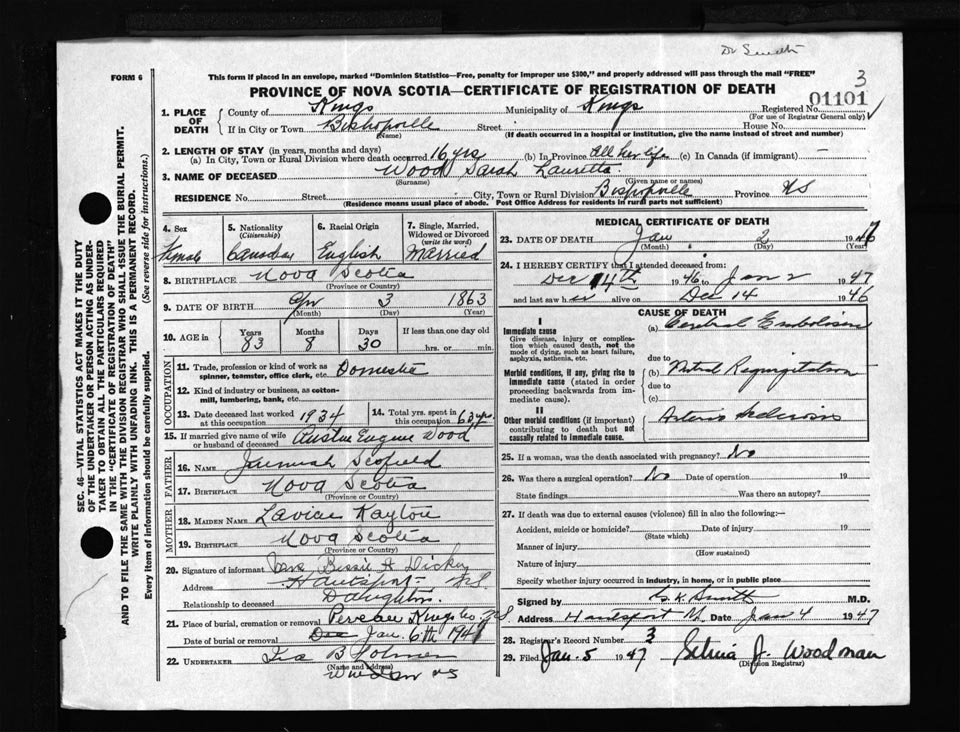 Dr Smith
FORM 6
This form if placed in an envelope, marked "Dominion Statistics—Free, penalty for improper use $300," and properly addressed will pass through the mail "FREE"
3
PROVINCE OF NOVA SCOTIA—CERTIFICATE OF REGISTRATION OF DEATH
01101
1. PLACE OF DEATH
County of Kings Municipality of Kings Registered No.
(For use of Registrar General only)
If in City or Town Bishopville Street House No.
(Name) (If death occurred in a hospital or institution, give the name instead of street and number)
2. LENGTH OF STAY (in years, months and days)
(a) In City, Town or Rural Division where death occurred 16 yrs (b) In Province All her life (c) In Canada (if immigrant) —
3. NAME OF DECEASED Wood Sarah Lauretta
(Surname) (Given name or names)
RESIDENCE No. Street City, Town or Rural Division Bishopville Province NS
(Residence means usual place of abode. Post Office Address for residents in rural parts not sufficient)
4. Sex
Female
5. Nationality
(Citizenship)
Canadian
6. Racial Origin
English
7. Single, Married, Widowed or Divorced
(write the word)
Married
8. BIRTHPLACE Nova Scotia
(Province or Country)
9. DATE OF BIRTH Apr 3 1863
(Month) (Day) (Year)
10. AGE in
Years Months Days If less than one day old
83 8 30 hrs. or min.
OCCUPATION
11. Trade, profession or kind of work as spinner, teamster, office clerk, etc. Domestic
12. Kind of industry or business, as cotton-mill, lumbering, bank, etc.
13. Date deceased last worked at this occupation 1934
14. Total yrs. spent in this occupation 63 yrs.
15. If married give name of wife or husband of deceased Austin Eugene Wood
FATHER
16. NAME Jeremiah Scofield
17. BIRTHPLACE Nova Scotia
(Province or Country)
MOTHER
18. MAIDEN NAME
19. BIRTHPLACE Nova Scotia
(Province or Country)
20. Signature of informant Bessie A
Address Hantsport N.S.
Relationship to deceased Daughter
21. Place of burial, cremation or removal Pereau Kings Co. N.S.
Date of burial or removal Dec Jan. 6th 1947
22. UNDERTAKER Ira B
(Name and address)
Windsor NS
MEDICAL CERTIFICATE OF DEATH
23. DATE OF DEATH Jan 2 1947
(Month) (Day) (Year)
24. I HEREBY CERTIFY that I attended deceased from:
Dec 14th 1946 to Jan 2 1947
and last saw her alive on Dec 14 1946
CAUSE OF DEATH
I
Immediate cause
Give disease, injury or complication which caused death, not the mode of dying, such as heart failure, asphyxia, asthenia, etc.
(a) Cerebral Embolism
due to
Morbid conditions, if any, giving rise to immediate cause (stated in order proceeding backwards from immediate cause).
(b) Mitral Regurgitation
due to
(c)
II
Other morbid conditions (if important) contributing to death but not causally related to immediate cause.
Arterio Sclerosis
25. If a woman, was the death associated with pregnancy? No
26. Was there a surgical operation? No Date of operation 19
State findings Was there an autopsy?
27. If death was due to external causes (violence) fill in also the following:—
Accident, suicide or homicide? Date of injury 19
(State which)
Manner of injury
(How sustained)
Nature of injury
Specify whether injury occurred in industry, in home, or in public place
Signed by Smith M.D.
Address Hantsport Date Jan 4 1947
28. Registrar's Record Number 3
29. Filed Jan. 5 1947 Selvia J. Woodman
(Division Registrar)
SEC. 46—VITAL STATISTICS ACT MAKES IT THE DUTY
OF THE UNDERTAKER OR PERSON ACTING AS UNDER-
TAKER TO OBTAIN ALL THE PARTICULARS REQUIRED
IN THE "CERTIFICATE OF REGISTRATION OF DEATH"
AND TO FILE THE SAME WITH THE DIVISION REGISTRAR WHO SHALL ISSUE THE BURIAL PERMIT.
WRITE PLAINLY WITH UNFADING INK. THIS IS A PERMANENT RECORD.
Every item of information should be carefully supplied. (See reverse side for instructions.)